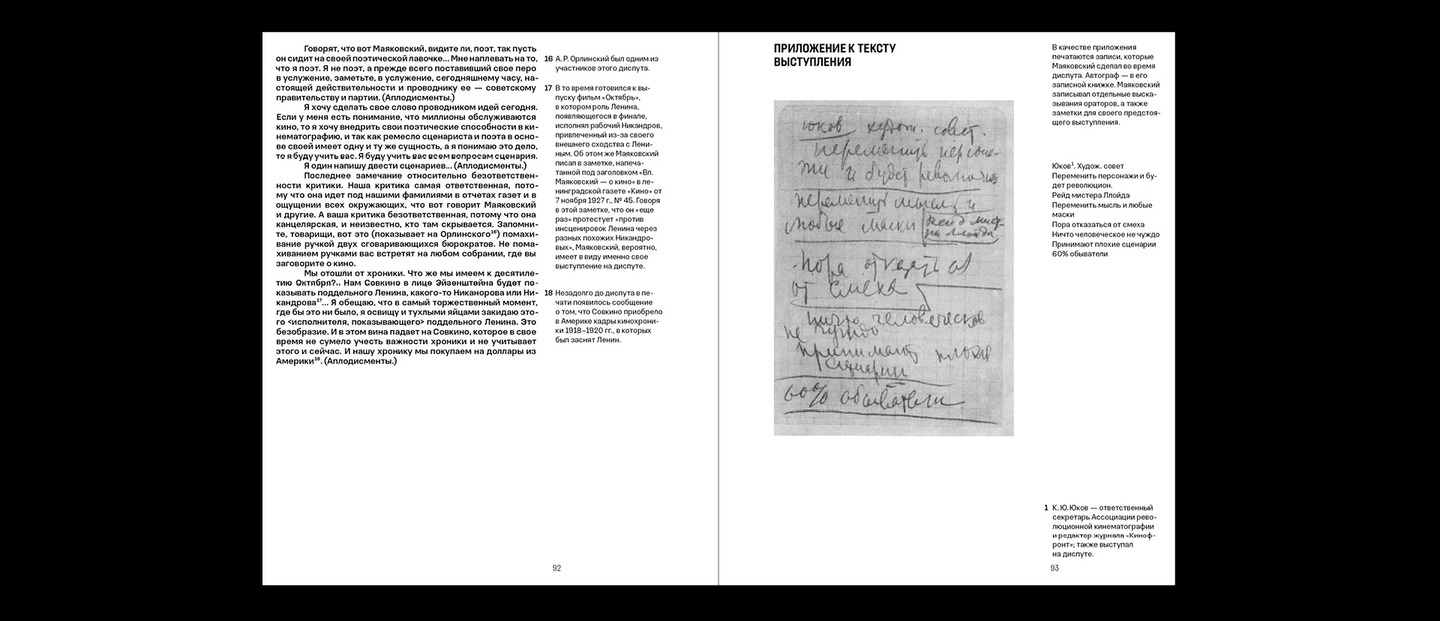 Говорят, что вот Маяковский, видите ли, поэт, так пусть
он сидит на своей поэтической лавочке... Мне наплевать на то,
что я поэт. Я не поэт, а прежде всего поставивший свое перо
в услужение, заметьте, в услужение, сегодняшнему часу, на-
стоящей действительности и проводнику ее — советскому
правительству и партии. (Аплодисменты.)
Я хочу сделать свое слово проводником идей сегодня.
Если у меня есть понимание, что миллионы обслуживаются
кино, то я хочу внедрить свои поэтические способности в ки-
нематографию, и так как ремесло сценариста и поэта в осно-
ве своей имеет одну и ту же сущность, а я понимаю это дело,
то я буду учить вас. Я буду учить вас всем вопросам сценария.
Я один напишу двести сценариев... (Аплодисменты.)
Последнее замечание относительно безответствен-
ности критики. Наша критика самая ответственная, пото-
му что она идет под нашими фамилиями в отчетах газет и в
ощущении всех окружающих, что вот говорит Маяковский
и другие. А ваша критика безответственная, потому что она
канцелярская, и неизвестно, кто там скрывается. Запомни-
те, товарищи, вот это (показывает на Орлинского16) помахи-
вание ручкой двух сговаривающихся бюрократов. Не пома-
хиванием ручками вас встретят на любом собрании, где вы
заговорите о кино.
Мы отошли от хроники. Что же мы имеем к десятиле-
тию Октября?.. Нам Совкино в лице Эйзенштейна будет по-
казывать поддельного Ленина, какого-то Никанорова или Ни-
кандрова17... Я обещаю, что в самый торжественный момент,
где бы это ни было, я освищу и тухлыми яйцами закидаю это-
го <исполнителя, показывающего> поддельного Ленина. Это
безобразие. И в этом вина падает на Совкино, которое в свое
время не сумело учесть важности хроники и не учитывает
этого и сейчас. И нашу хронику мы покупаем на доллары из
Америки18. (Аплодисменты.)
16 А. Р. Орлинский был одним из
участников этого диспута.
17 В то время готовился к вы-
пуску фильм «Октябрь»,
в котором роль Ленина,
появляющегося в финале,
исполнял рабочий Никандров,
привлеченный из-за своего
внешнего сходства с Лени-
ным. Об этом же Маяковский
писал в заметке, напеча-
танной под заголовком «Вл.
Маяковский — о кино» в ле-
нинградской газете «Кино» от
7 ноября 1927 г., № 45. Говоря
в этой заметке, что он «еще
раз» протестует «против
инсценировок Ленина через
разных похожих Никандро-
вых», Маяковский, вероятно,
имеет в виду именно свое
выступление на диспуте.
18 Незадолго до диспута в пе-
чати появилось сообщение
о том, что Совкино приобрело
в Америке кадры кинохрони-
ки 1918–1920 гг., в которых
был заснят Ленин.
92
ПРИЛОЖЕНИЕ К ТЕКСТУ
ВЫСТУПЛЕНИЯ
юков худож. совет.
переменить персона-
жи и будет революцион
переменить мысль и
любые маски
рейд мисте-
ра Ллойда
Пора отказаться
от смеха
ничто человеческое
не чуждо
принимают плохие
сценарии
60% обыватели
В качестве приложения
печатаются записи, которые
Маяковский сделал во время
диспута. Автограф — в его
записной книжке. Маяковский
записывал отдельные выска-
зывания ораторов, а также
заметки для своего предстоя-
щего выступления.
Юков1. Худож. совет
Переменить персонажи и бу-
дет революцион.
Рейд мистера Ллойда
Переменить мысль и любые
маски
Пора отказаться от смеха
Ничто человеческое не чуждо
Принимают плохие сценарии
60% обыватели
1 К. Ю. Юков — ответственный
секретарь Ассоциации рево-
люционной кинематографии
и редактор журнала «Киноф-
ронт»; также выступал
на диспуте.
93